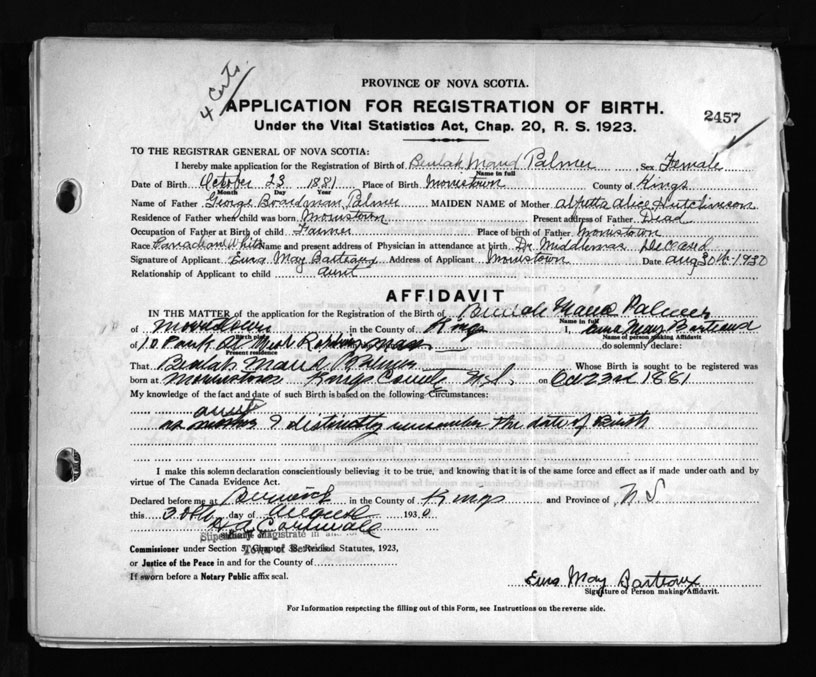 4 Certs.
PROVINCE OF NOVA SCOTIA.
APPLICATION FOR REGISTRATION OF BIRTH.
2457
Under the Vital Statistics Act, Chap. 20, R. S. 1923.
TO THE REGISTRAR GENERAL OF NOVA SCOTIA:
I hereby make application for the Registration of Birth of Beulah Maud Palmer Sex Female
Name in full
Date of Birth October 23 1881 Place of Birth Morristown County of Kings
Month Day Year
Name of Father George Boardman Palmer MAIDEN NAME of Mother Alice Hutchinson
Residence of Father when child was born Morristown Present address of Father Dead
Occupation of Father at Birth of child Farmer Place of birth of Father Morristown
Race Canadian White Name and present address of Physician in attendance at birth Dr Middlemas Deceased
Signature of Applicant May Barteaux Address of Applicant Morristown Date Aug 30th 1930
Relationship of Applicant to child aunt
AFFIDAVIT
IN THE MATTER of the application for the Registration of the Birth of Beulah Maud Palmer
Name in full
of Morristown in the County of Kings I, May Barteaux
Birth place
Name of person making Affidavit
of 10 Park St do solemnly declare:
Present residence
That Beulah Maud Palmer Whose Birth is sought to be registered was
born at Morristown Kings County N.S. on Oct 23rd 1881
My knowledge of the fact and date of such Birth is based on the following Circumstances:
aunt
as mother I distinctly remember the date of Birth
I make this solemn declaration conscientiously believing it to be true, and knowing that it is of the same force and effect as if made under oath and by
virtue of The Canada Evidence Act.
Declared before me at Berwick in the County of Kings and Province of N S
this 30th day of August 1930
Stipendiary Magistrate in
Town of Berwick
Commissioner under Section 3, Chapter 38, Revised Statutes, 1923,
or Justice of the Peace in and for the County of
If sworn before a Notary Public affix seal.
May Barteaux
Signature of Person making Affidavit.
For Information respecting the filling out of this Form, see Instructions on the reverse side.